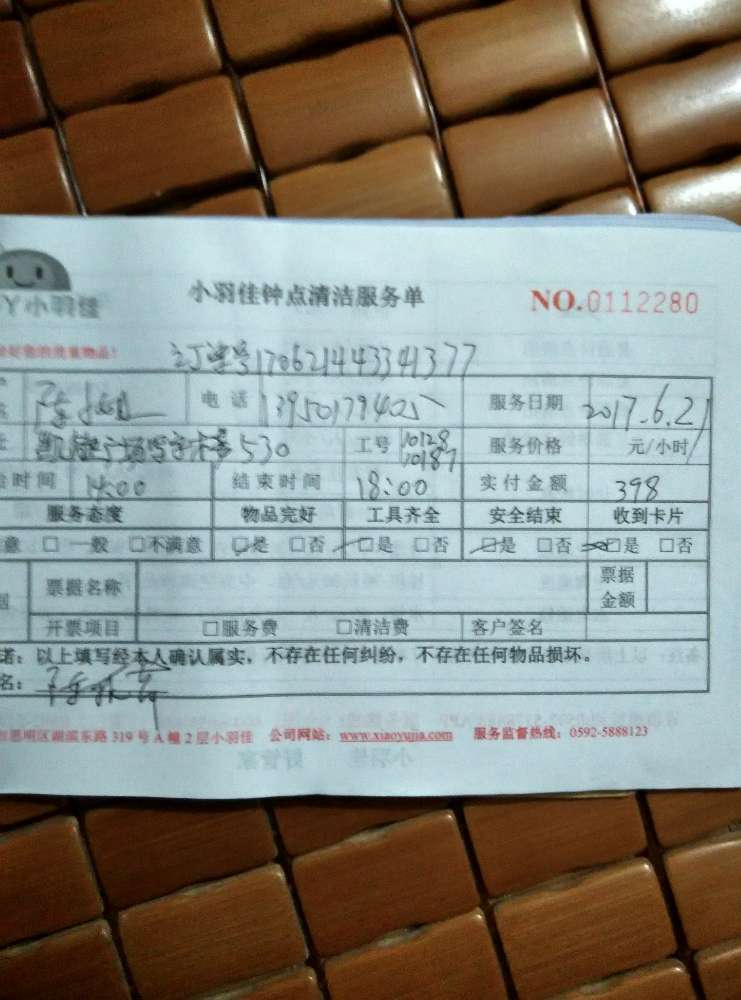 小羽佳钟点清洁服务单 NO.0112280
Y小羽佳
订单号170621443341377
陈小姐 电话 13950179405 服务日期 2017.6.21
530 工号 10128 10187 服务价格 元/小时
时间 14:00 结束时间 18:00 实付金额 398
服务态度 物品完好 工具齐全 安全结束 收到卡片
意 □一般 □不满意 □是 □否 □是 □否 □是 □否 □是 □否
票据名称 票据金额
开票项目 □服务费 □清洁费 客户签名
诺：以上填写经本人确认属实，不存在任何纠纷，不存在任何物品损坏。
名：
思明区湖滨东路 319 号 A 幢 2 层小羽佳 公司网站：www.xiaoyujia.com 服务监督热线：0592-5888123